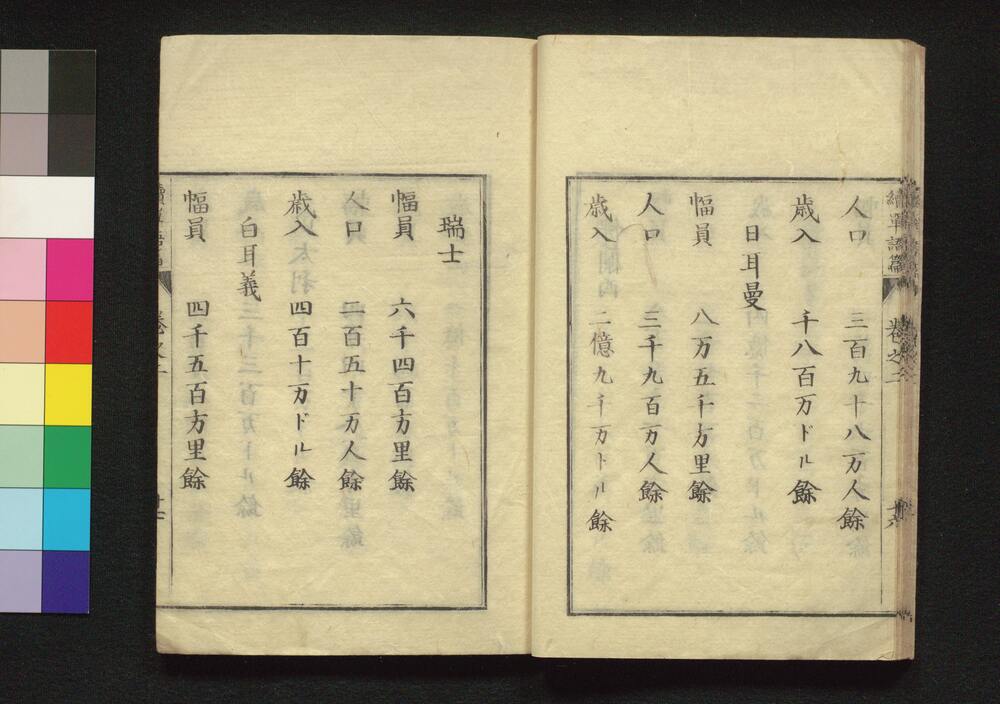 續單語篇 卷之二
人口 三百九十八万人餘
歳入 千八百万ドル餘
日耳曼
幅員 八万五千方里餘
人口 三千九百万人餘
歳入 二億九千万トル餘
瑞士
幅員 六千四百方里餘
人口 二百五十万人餘
歳入 四百十万ドル餘
白耳義
幅員 四千五百方里餘